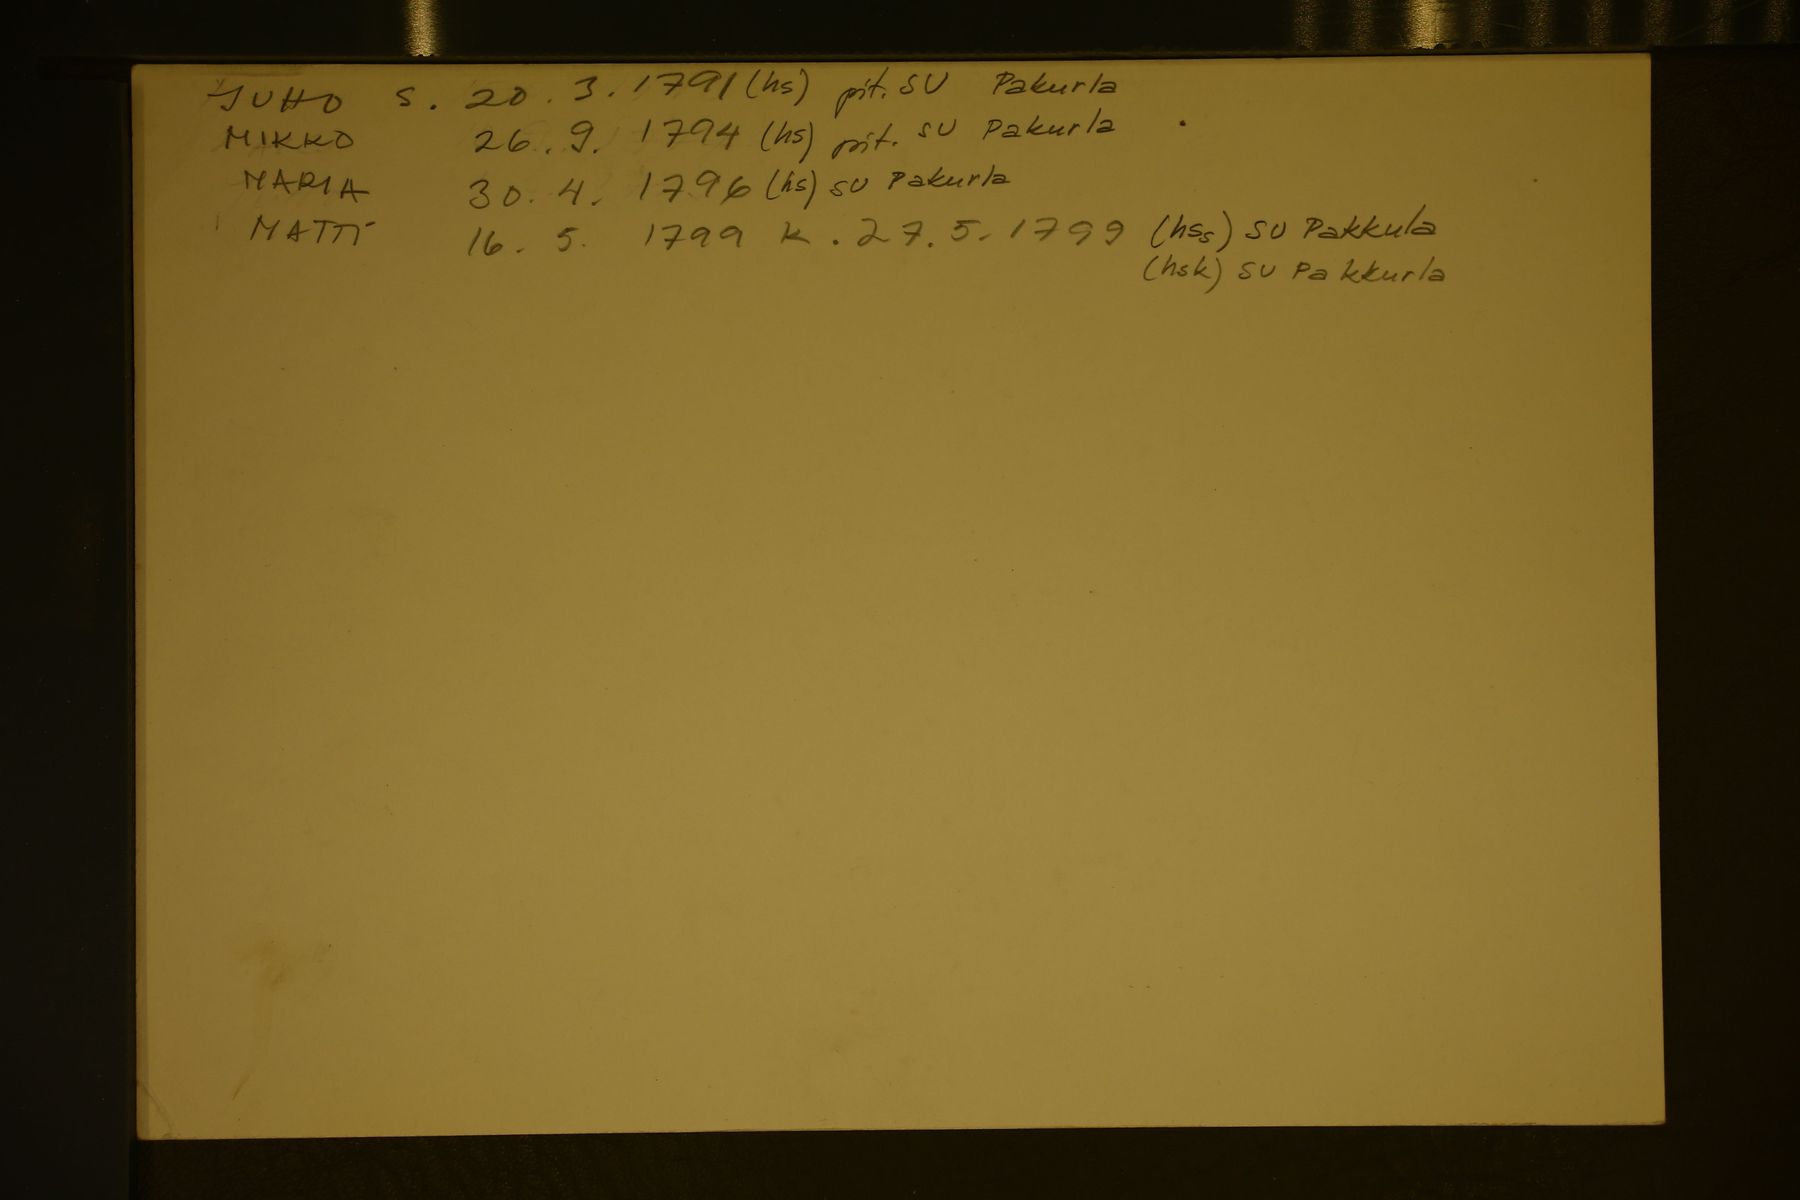 JUHO S. 20.3.1791 (hs) pit. SU Pakurla
MIKKO 26.9.1794 (hs) pit. SU Pakurla
MARIA 30.4.1796 (hs) SU Pakurla
MATTI 16.5.1799 K.27.5.1799 (hss) SU Pakkula
(hsk) SU Pakkurla